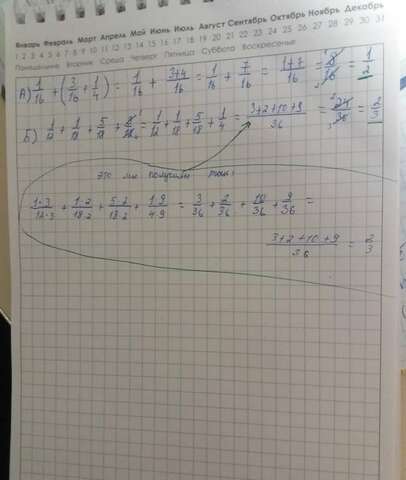 Январь Февраль Март Апрель Май Июнь Июль Август Сентябрь Октябрь Ноябрь Декабрь
1 2 3 4 5 6 7 8 9 10 11 12 13 14 15 16 17 18 19 20 21 22 23 24 25 26 27 28 29 30 31
Понедельник Вторник Среда Четверг Пятница Суббота Воскресенье
А) 1/16 + (3/16 + 1/4) = 1/16 + 3+4/16 = 1/16 + 7/16 = 1+7/16 = 8/16 = 1/2
Б) 1/12 + 1/18 + 5/18 + = 1/12 + 1/18 + 5/18 + 1/4 = 3+2+10+9/36 = 24/36 = 2/3
это мы получили
1·3/12·3 + 1·2/18·2 + 5·2/18·2 + 1·9/4·9 = 3/36 + 2/36 + 10/36 + 9/36 =
3+2+10+9/36 = 2/3